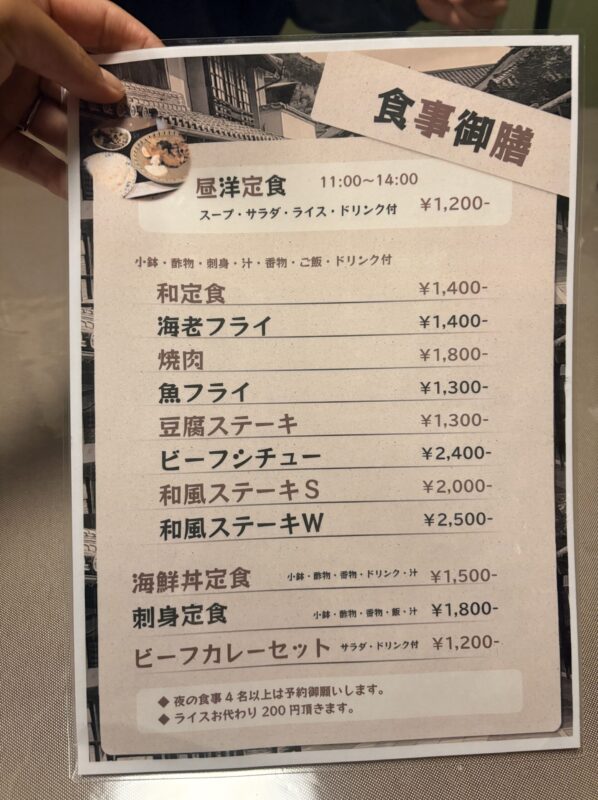 食事御膳
昼洋定食 11:00～14:00
スープ・サラダ・ライス・ドリンク付 ¥1,200-
小鉢・酢物・刺身・汁・香物・ご飯・ドリンク付
和定食 ¥1,400-
海老フライ ¥1,400-
焼肉 ¥1,800-
魚フライ ¥1,300-
豆腐ステーキ ¥1,300-
ビーフシチュー ¥2,400-
和風ステーキS ¥2,000-
和風ステーキW ¥2,500-
海鮮丼定食 小鉢・酢物・香物・ドリンク・汁 ¥1,500-
刺身定食 小鉢・酢物・香物・飯・汁 ¥1,800-
ビーフカレーセット サラダ・ドリンク付 ¥1,200-
◆ 夜の食事4名以上は予約御願いします。
◆ ライスお代わり200円頂きます。